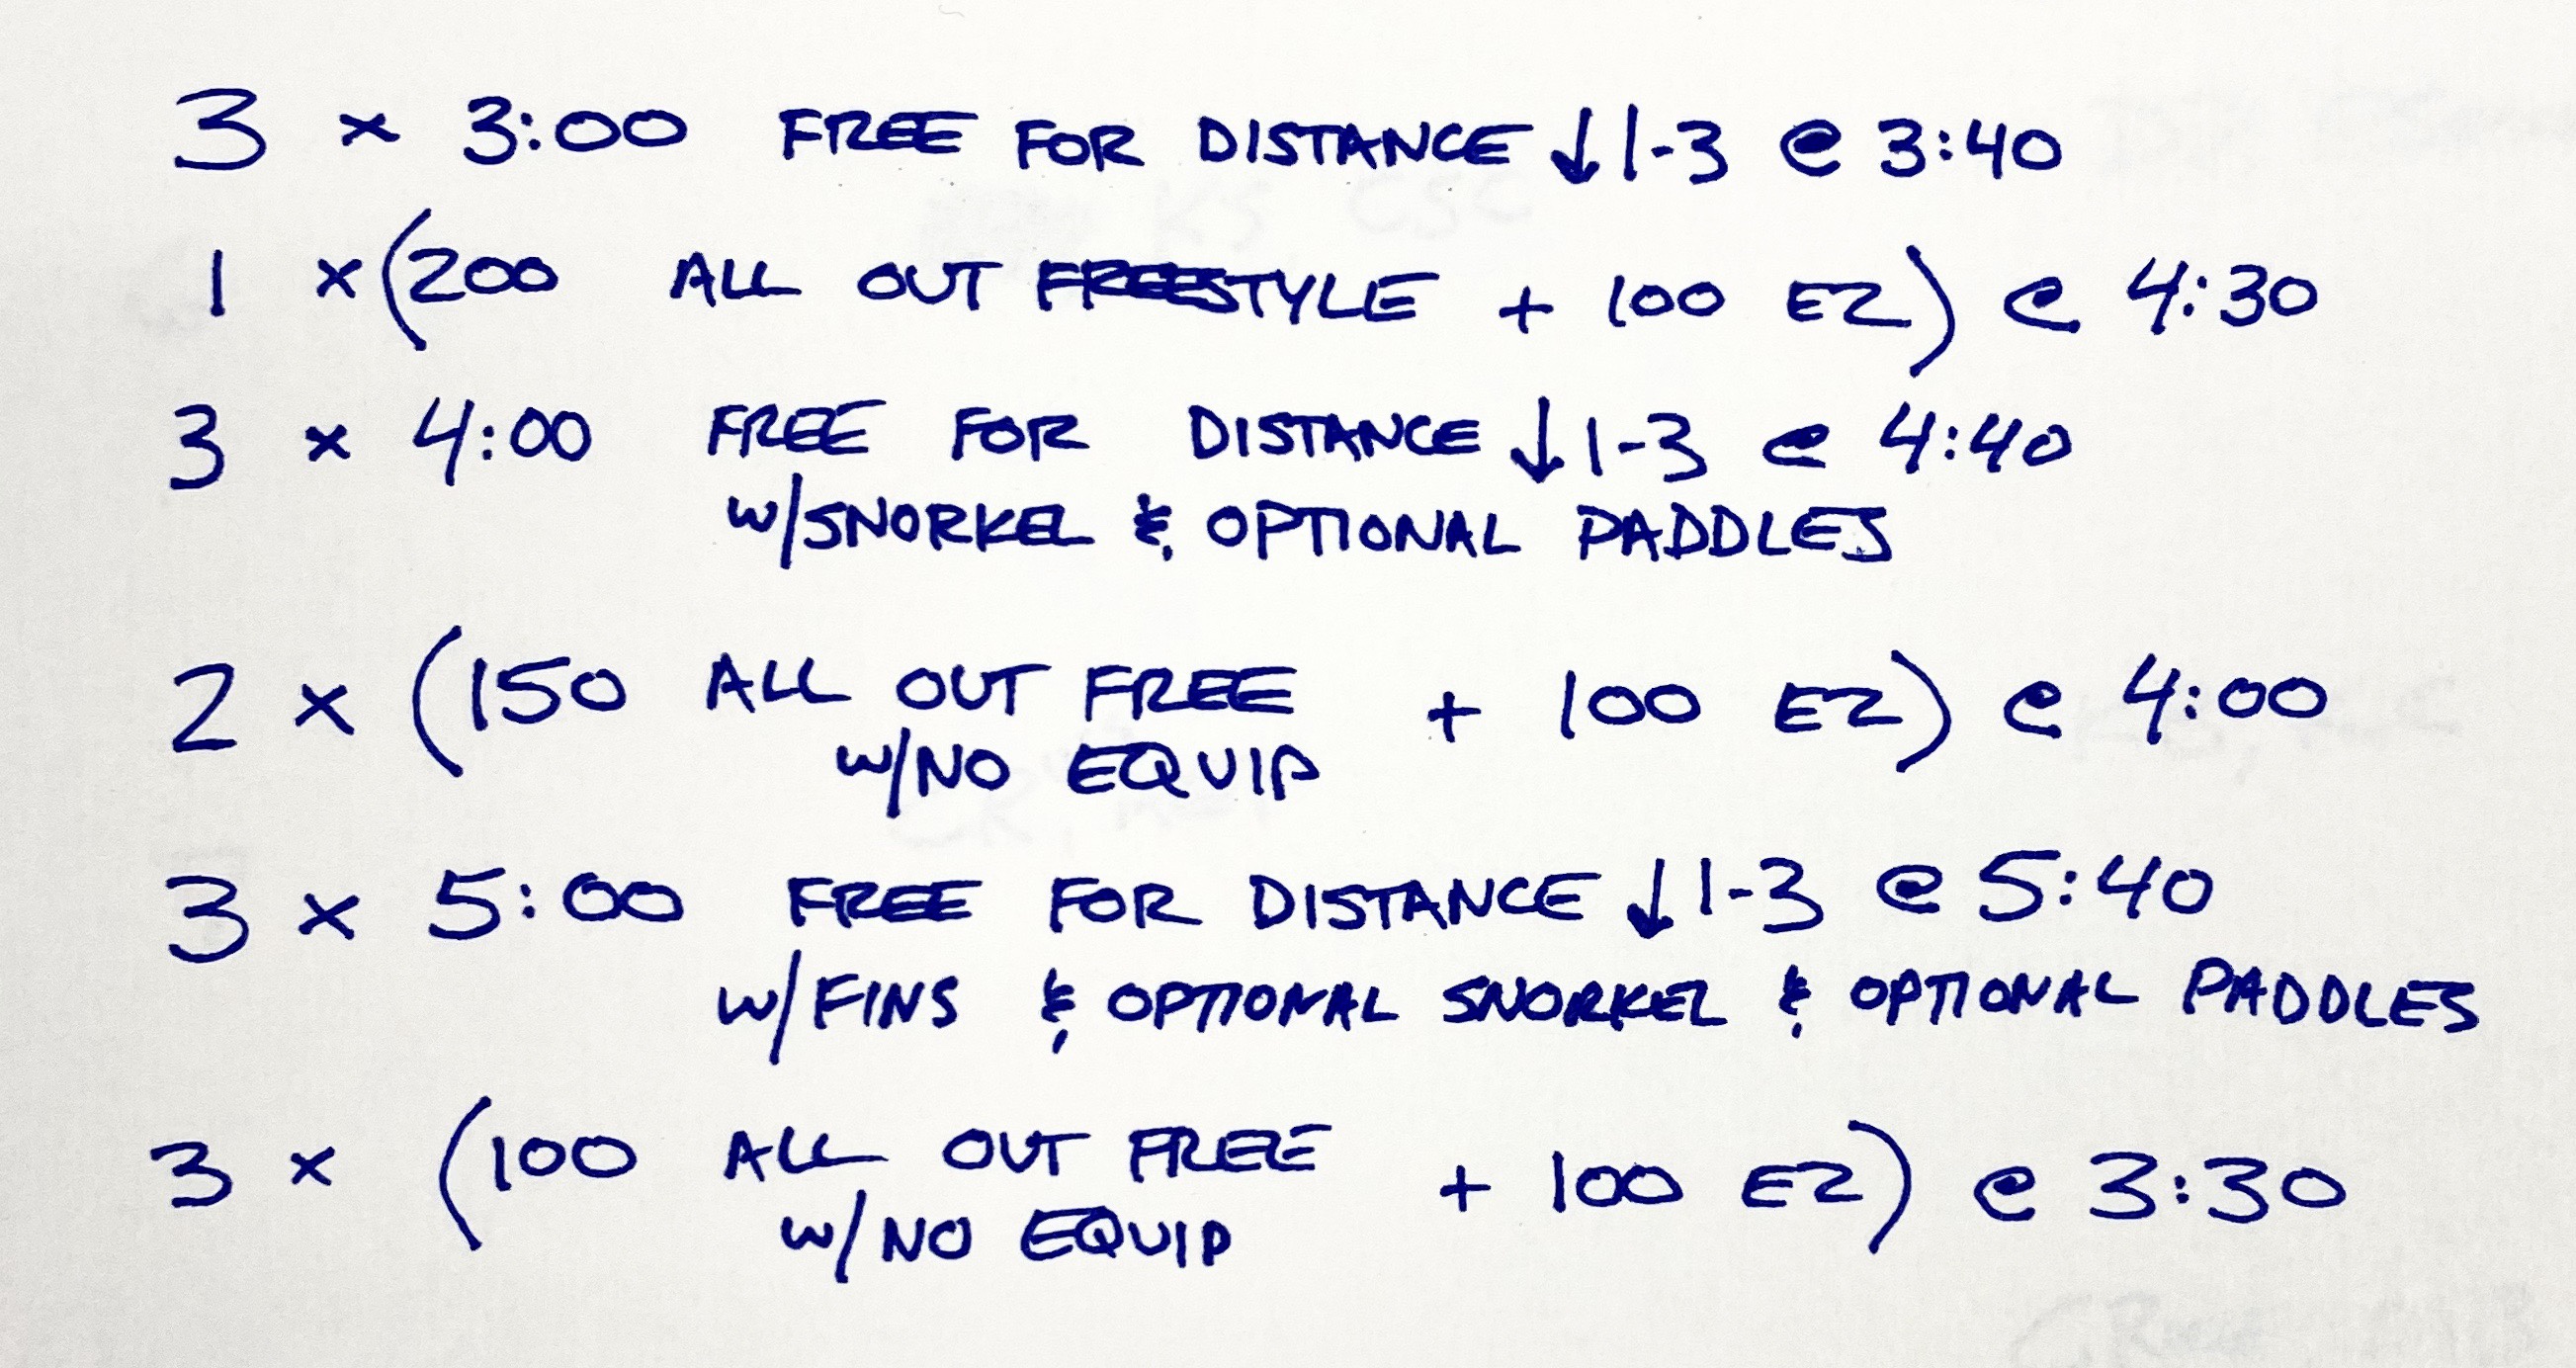 3 x 3:00 FREE FOR DISTANCE ↓1-3 @ 3:40
1 x (200 ALL OUT FREESTYLE + 100 EZ) @ 4:30
3 x 4:00 FREE FOR DISTANCE ↓1-3 @ 4:40
w/SNORKEL & OPTIONAL PADDLES
2 x (150 ALL OUT FREE + 100 EZ) @ 4:00
w/NO EQUIP
3 x 5:00 FREE FOR DISTANCE ↓1-3 @ 5:40
w/FINS & OPTIONAL SNORKEL & OPTIONAL PADDLES
3 x (100 ALL OUT FREE + 100 EZ) @ 3:30
w/NO EQUIP